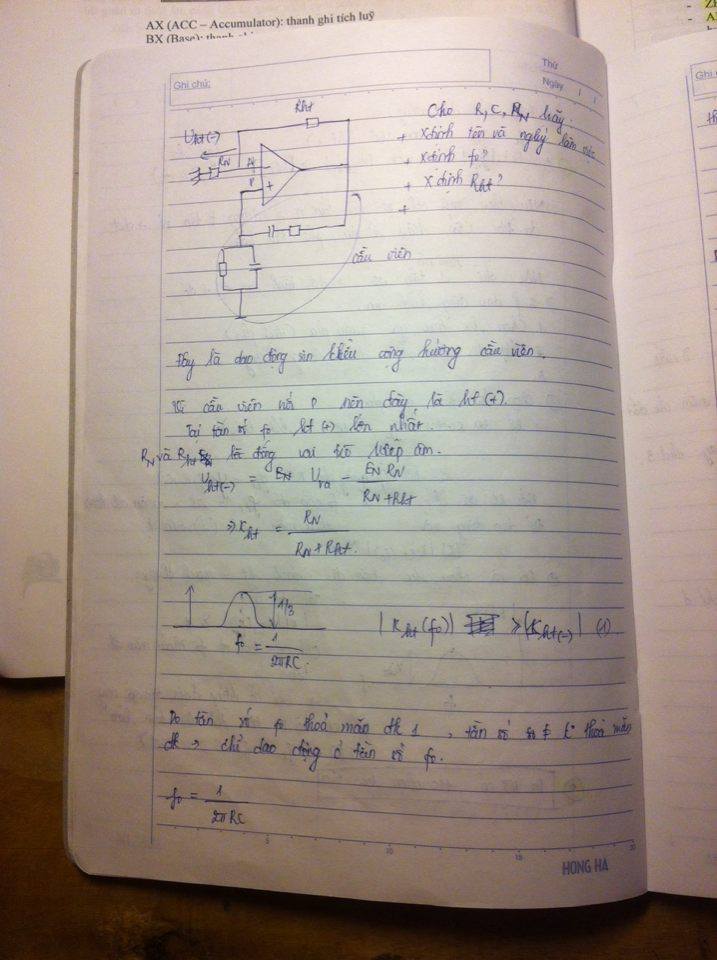 AX (ACC – Accumulator): thanh ghi tích luỹ
BX (Base): thanh ghi
Ghi chú:
Thứ
Ngày
Rht
Cho R, C, RN hãy.
Uht(-)
+ Xđịnh tên và nglý làm việc
RN
N
+ Xđịnh f0?
P
+ Xđịnh Rht?
+
cầu viên
Đây là dao động sin kiểu cộng hưởng cầu viên.
Vì cầu viên nối P nên đây là ht (+).
Tại tần số f0 ht (+) lớn nhất.
RN và Rht là đóng vai trò tiếp âm.
Uht(-) = Ura = EN RN / RN + Rht
=> Kht = RN / RN + Rht.
1/3
| Kht (f0) | > | Kht(-) | (1).
f0 = 1 / 2πRC.
Do tần số f0 thoả mãn đk 1, tần số ≠ k° thoả mãn
đk => chỉ dao động ở tần số f0.
f0 = 1 / 2πRC
5 10 15 20
HONG HA